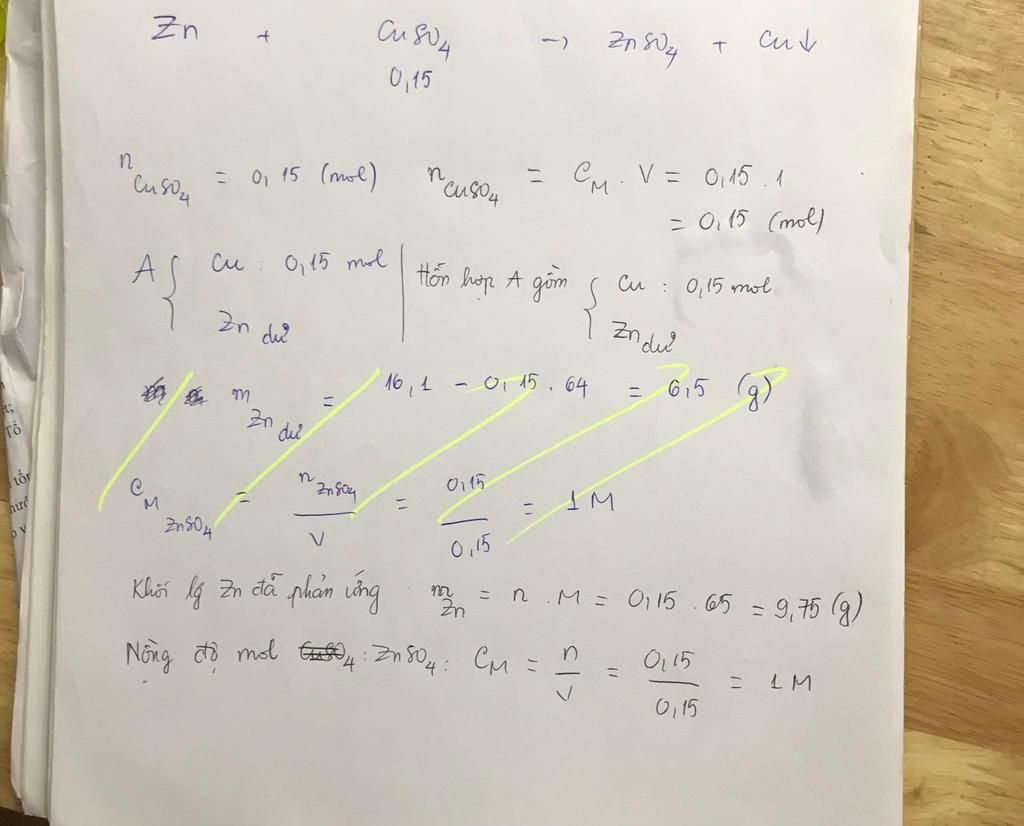 Zn + CuSO4 → ZnSO4 + Cu↓
0,15
nCuSO4 = 0,15 (mol) nCuSO4 = CM . V = 0,15 . 1
= 0,15 (mol)
A { Cu : 0,15 mol | Hỗn hợp A gồm { Cu : 0,15 mol
Zn dư Zn dư
mZn dư = 16,1 - 0,15 . 64 = 6,5 (g)
CM ZnSO4 = nZnSO4 / V = 0,15 / 0,15 = 1 M
Khối lg Zn đã phản ứng mZn = n . M = 0,15 . 65 = 9,75 (g)
Nồng độ mol CuSO4 : ZnSO4 : CM = n / V = 0,15 / 0,15 = 1 M